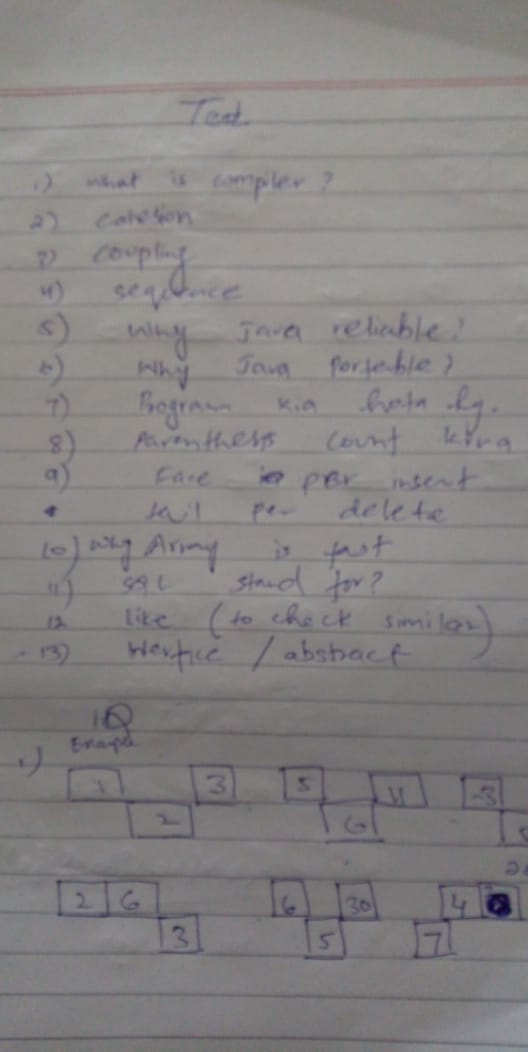 Test
1) what is compiler?
2) cohesion
3) coupling
4) sequence
5) Why Java reliable?
6) Why Java Portable?
7) Program kia hota hy.
8) Parenthesis count krna
9) Face per insert
tail per delete
10) why Array is fast
11) SQL stand for?
12 like (to check similar)
13) Interface / abstract
IQ
Example
1)
1 3 5 11 -3
2 6
2 6 6 30 4
3 5 7